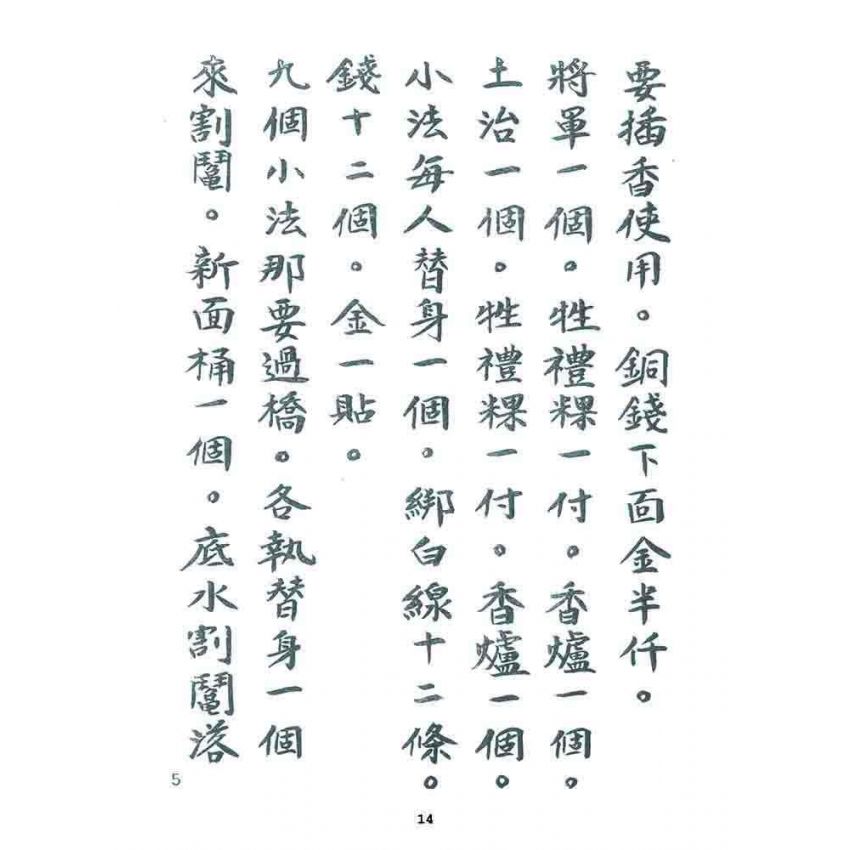 要插香使用。銅錢下面金半仟。
將軍一個。牲禮粿一付。香爐一個。
土治一個。牲禮粿一付。香爐一個。
小法每人替身一個。綁白線十二條。
錢十二個。金一貼。
九個小法那要過橋。各執替身一個
來割鬮。新面桶一個。底水割鬮落
5
14